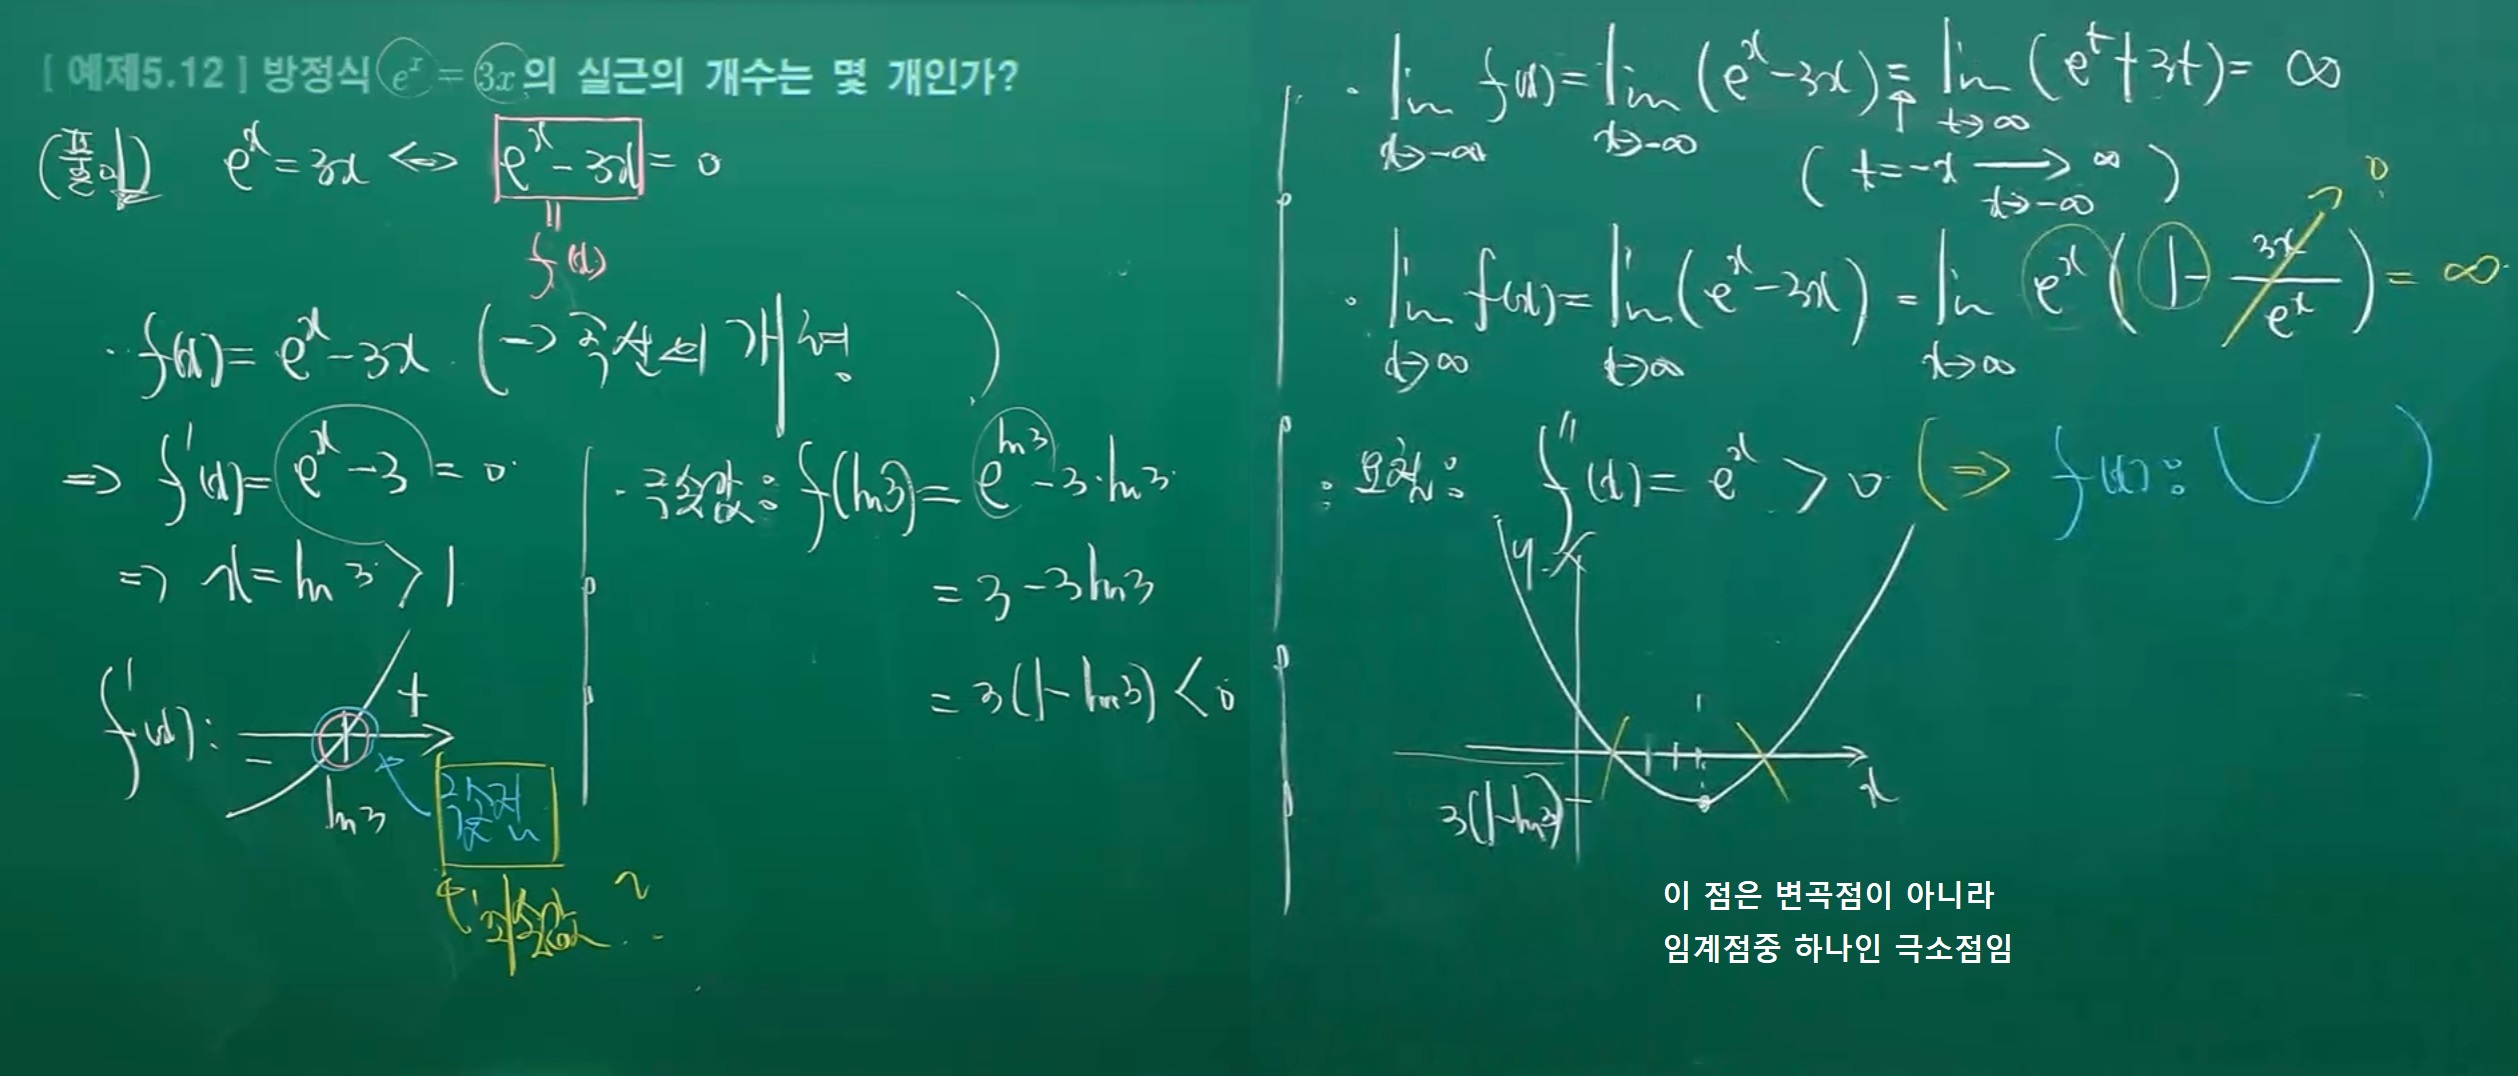 [ 예제5.12 ] 방정식 e^x = 3x의 실근의 개수는 몇 개인가?
(풀이) e^x = 3x <=> e^x - 3x = 0
=
f(x)
· f(x) = e^x - 3x (-> 곡선의 개형)
=> f'(x) = e^x - 3 = 0
=> x = ln 3 > 1
f'(x): - + ln3
극소점
최솟값
· 극솟값: f(ln3) = e^(ln3) - 3·ln3
= 3 - 3ln3
= 3(1 - ln3) < 0
· lim_(x->-∞) f(x) = lim_(x->-∞) (e^x - 3x) = lim_(t->∞) (e^t + 3t) = ∞
( t = -x -> ∞ ) x->-∞
· lim_(x->∞) f(x) = lim_(x->∞) (e^x - 3x) = lim_(x->∞) e^x (1 - 3x/e^x) = ∞
0
: 요철: f''(x) = e^x > 0 (=> f(x): ∪ )
y
x
3(1-ln3)
이 점은 변곡점이 아니라
임계점중 하나인 극소점임